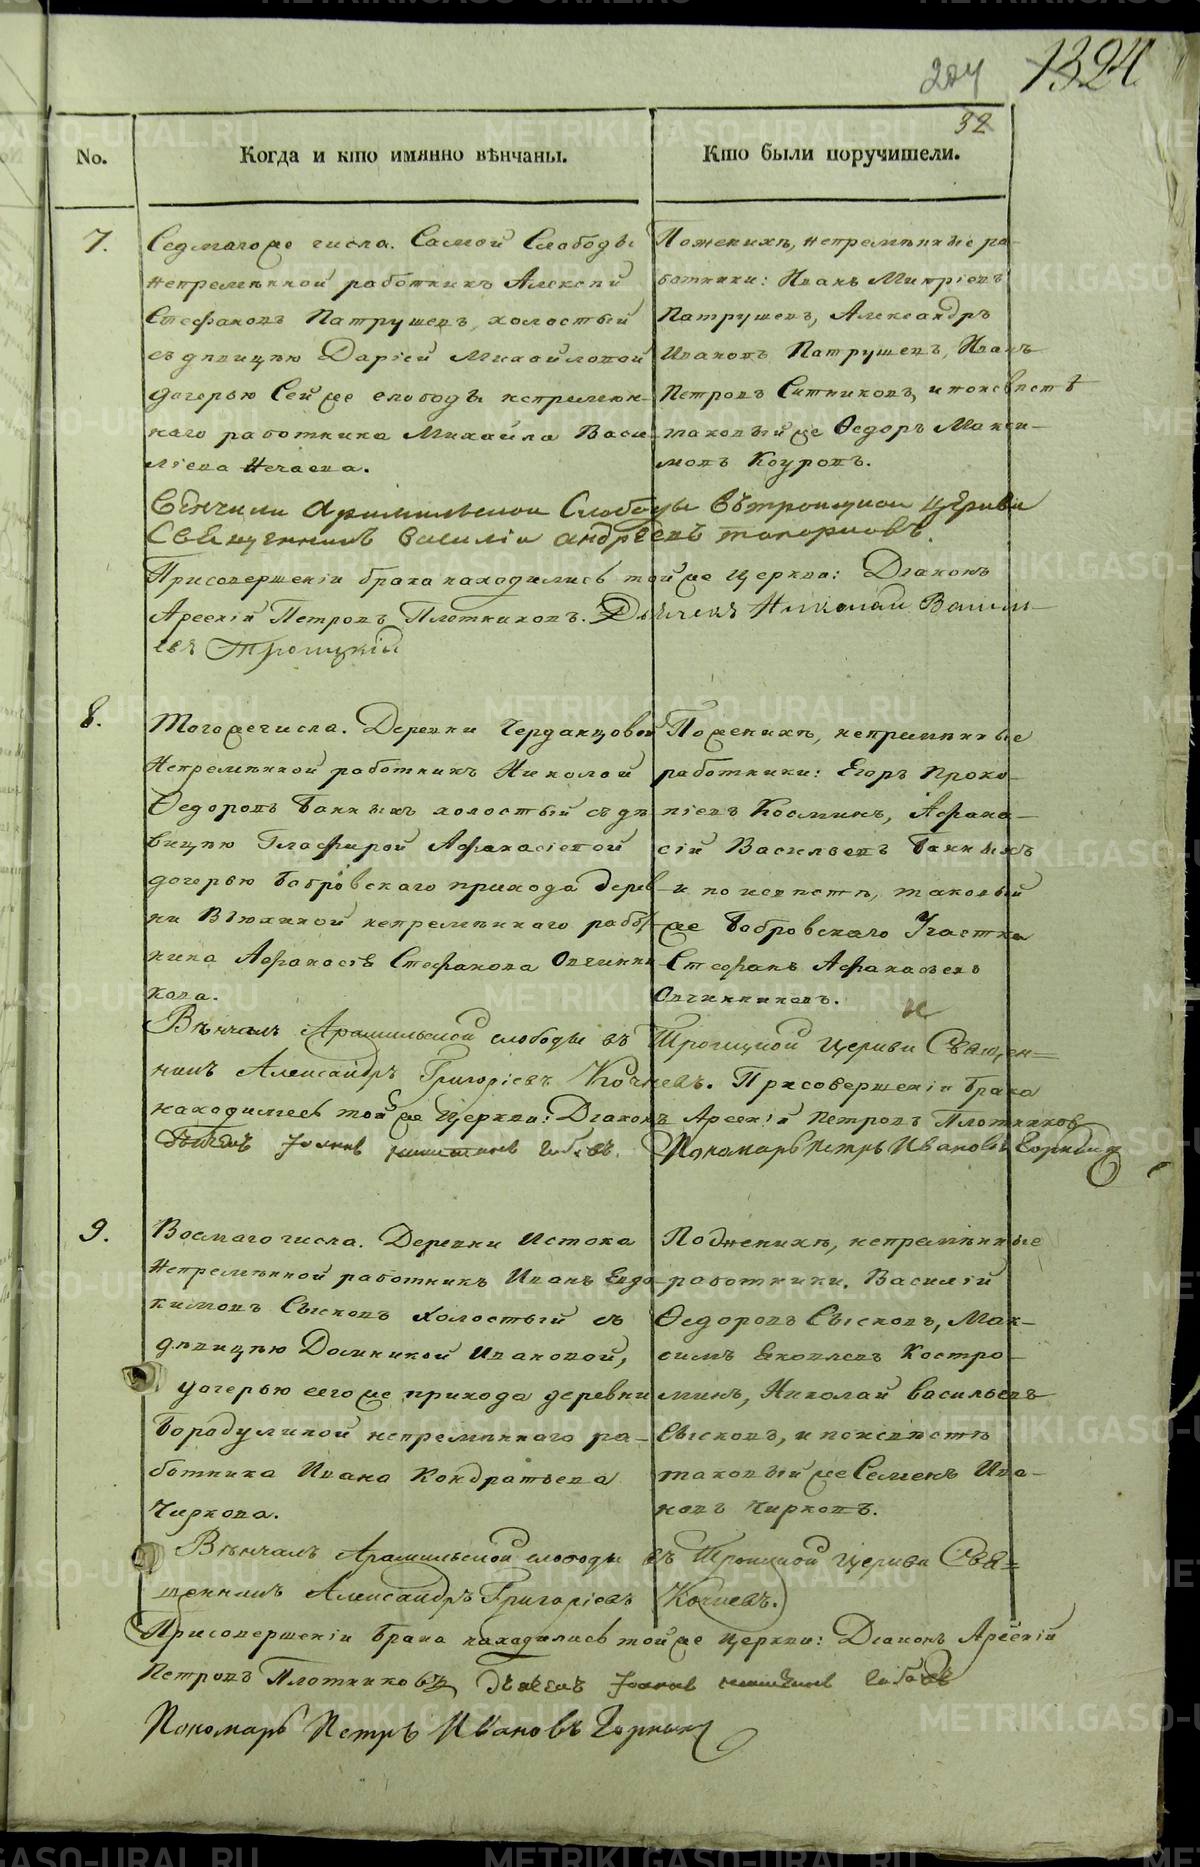 224 1324
32
No. Когда и кто имянно вѣнчаны. Кто были поручители.
7. Седмагоже числа. Самой Слободы
непремѣнной работникъ Алексѣй
Стефановъ Патрушевъ, холостый
съ дѣвицею Дарїей Михайловой
дочерью Сей же слободы непремѣн-
наго работника Михайла Васи-
лїева Нечаева.
Поженихѣ, непремѣнные ра-
ботники: Иванъ Митрїевъ
Патрушевъ, Александръ
Ивановъ Патрушевъ, Иванъ
Петровъ Ситниковъ, и поневѣстѣ
таковый же Ѳедоръ Макси-
мовъ Коуровъ.
Вѣнчали Арамильской Слободы въ троицкой церкви
Священникъ Василїй андреевъ топорковъ.
Присовершенїи брака находились той же церкви: Дїаконъ
Арсенїй Петровъ Плотниковъ. Дьячекъ Николай Василь-
евъ Троицкїй
8. Тогожечисла. Деревни Черданцовой
Непремѣнной работникъ Николай
Ѳедоровъ Банныхъ холостый съ дѣ-
вицею Глафирой Афанасїевой
дочерью Бобровскаго прихода дерев-
ни Вьюхиной непремѣннаго работ-
ника Афанасїя Стефанова Овчинни-
кова.
Поженихѣ, непремѣнные
работники: Егоръ Проко-
пїевъ Косминъ, Афана-
сїй Васильевъ Банныхъ
и по невѣстѣ, таковый
же Бобровскаго Участка
Стефанъ Афанасьевъ
Овчинниковъ.
Вѣнчалъ Арамильской слободы въ Троицкой Церкви Священ-
никъ Александръ Григорїевъ Кочневъ. Присовершенїи брака
находились той же Церкви: Дїаконъ Арсенїй Петровъ Плотниковъ
Пономарь Петръ Ивановъ
9. Восмаго числа. Деревни Истока
Непремѣнной работникъ Иванъ Евдо-
кимовъ Сысковъ холостый съ
дѣвицею Домникой Ивановой,
дочерью сего же прихода деревни
Бородулиной непремѣннаго ра-
ботника Ивана Кондратьева
Чиркова.
Подженихѣ, непремѣнные
работники. Василїй
Ѳедоровъ Сысковъ, Мак-
симъ Яковлевъ Костро-
минъ, Николай Васильевъ
Сысковъ, и поневѣстѣ
таковый же Семенъ Ива-
новъ Чирковъ.
Вѣнчалъ Арамильской слободы въ Троицкой Церкви Свя-
щенникъ Александръ Григорїевъ Кочневъ.
Присовершенїи брака находились той же церкви: Дїаконъ Арсенїй
Петровъ Плотниковъ, дьячекъ
Пономарь Петръ Ивановъ